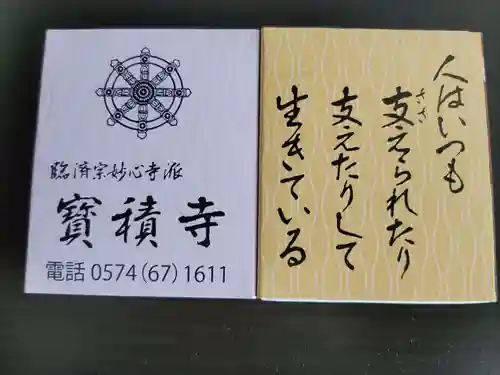 臨済宗妙心寺派
寳積寺
電話 0574(67)1611
人はいつも
ささ
支えられたり
支えたりして
生きている